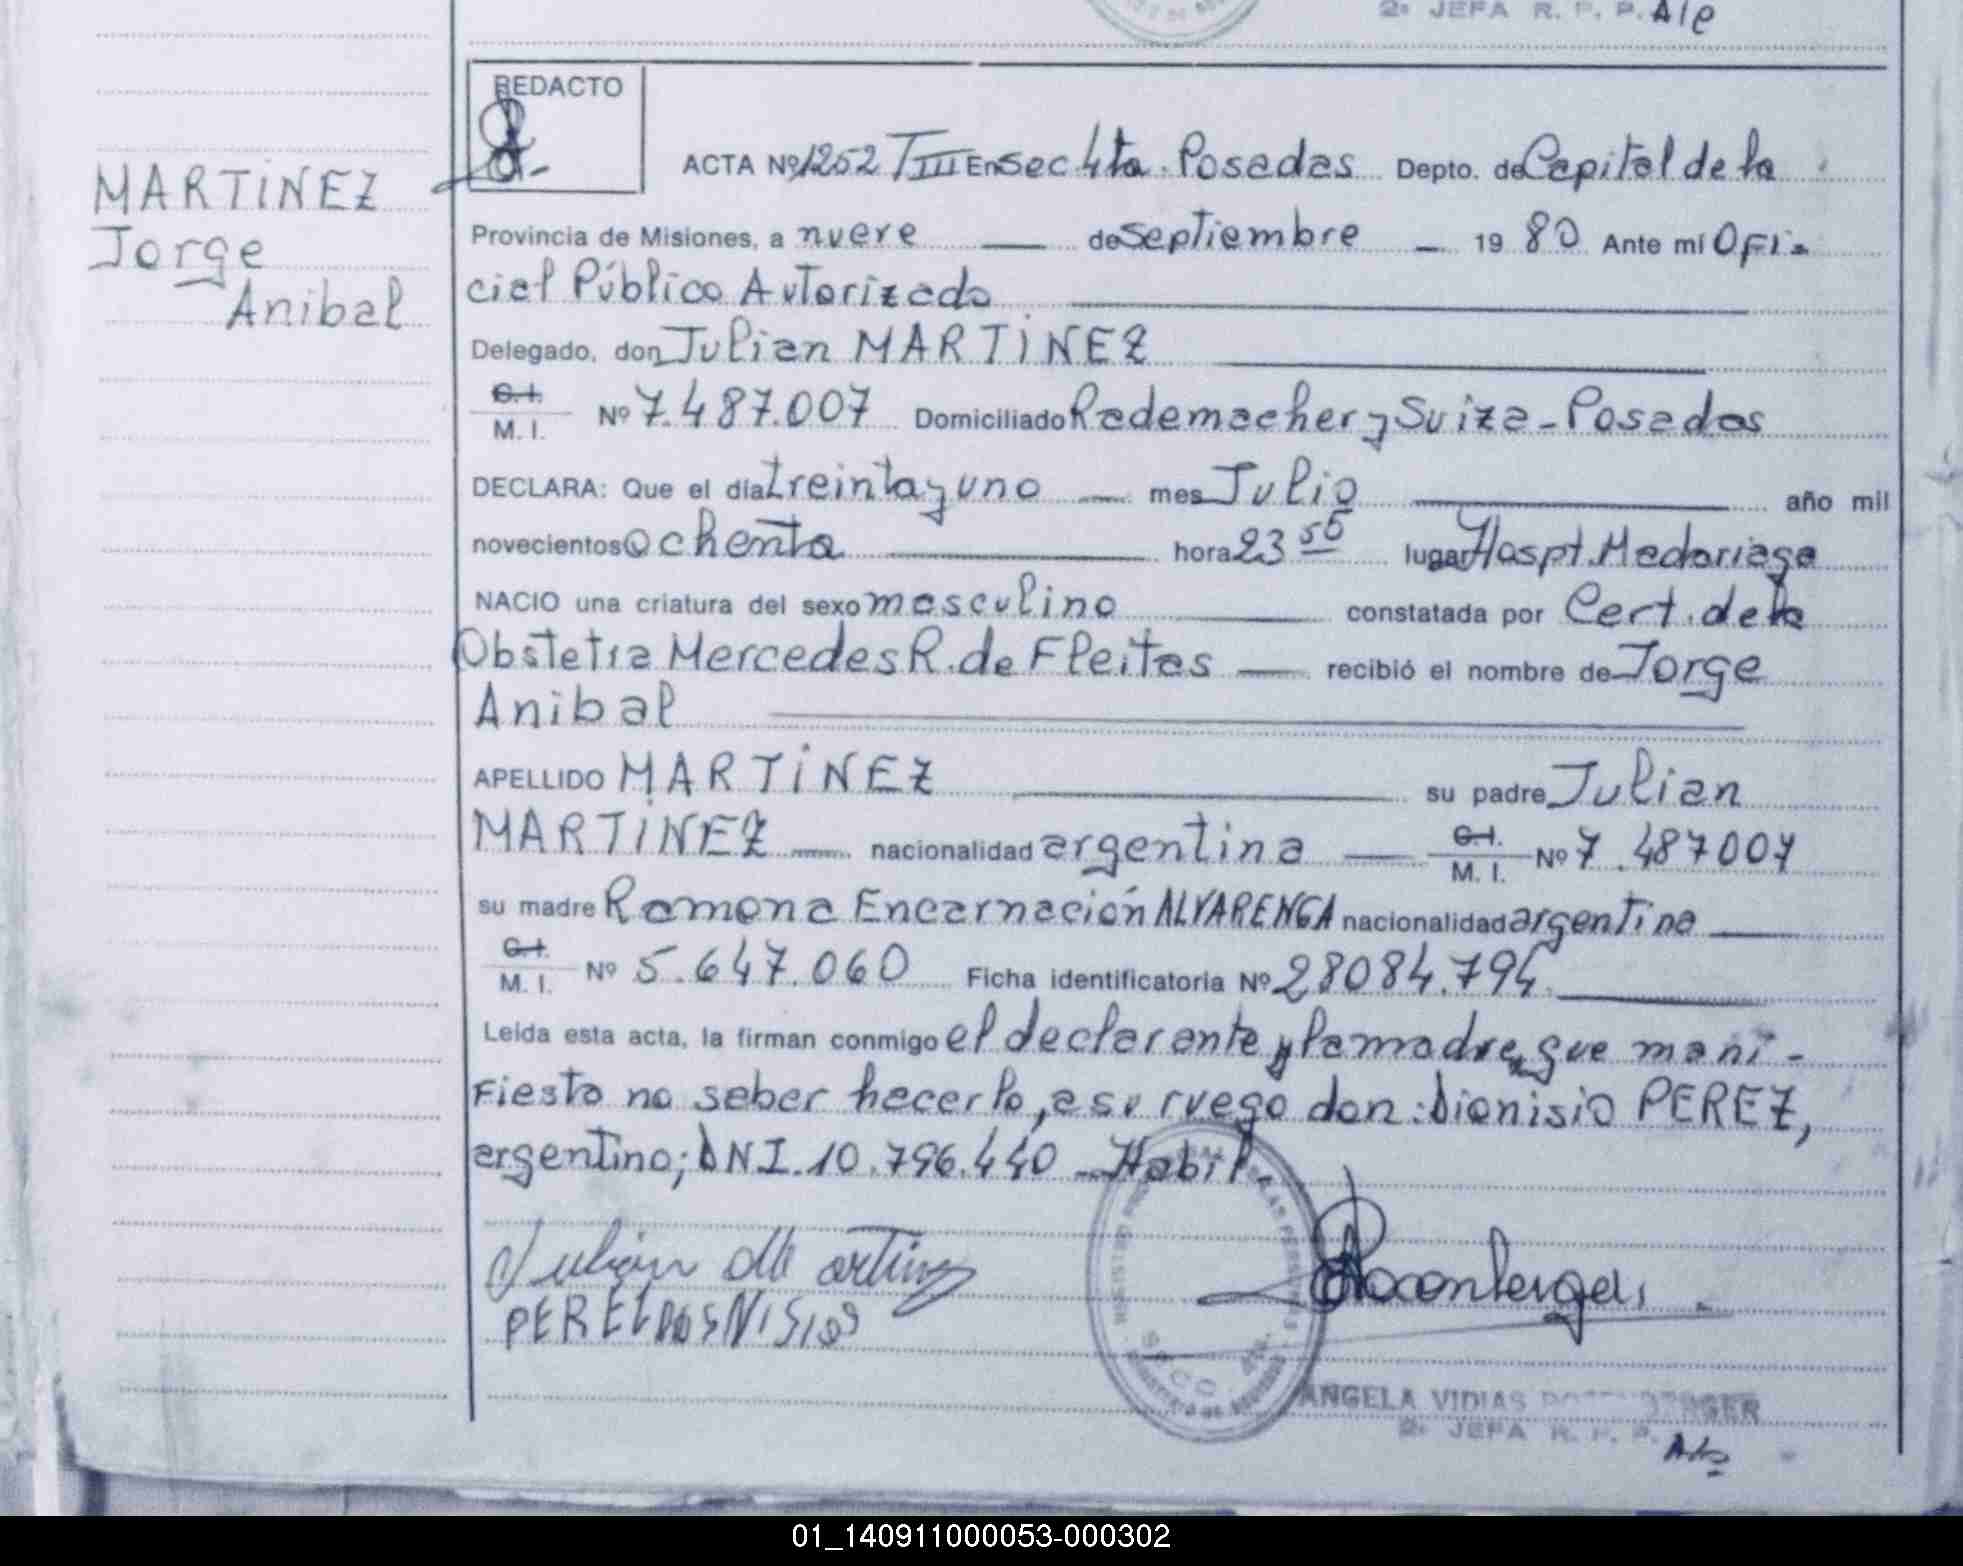 2º JEFA R. P. P. Ale
REDACTO
MARTÍNEZ
Jorge
Anibal
ACTA Nº 1252 TIII En Sec 4ta. Posadas Depto. de Capital de la
Provincia de Misiones, a nueve — de septiembre — 19 80 Ante mí Ofi-
cial Público Autorizado
Delegado, don Julian MARTÍNEZ
C.I.
M. I. Nº 7.487.007 Domiciliado Rademacher y Suiza - Posadas
DECLARA: Que el día treinta y uno — mes Julio año mil
novecientos ochenta hora 23 55 lugar Hospt. Madariaga
NACIO una criatura del sexo masculino constatada por Cert. de la
Obstetra Mercedes R. de Fleitas — recibió el nombre de Jorge
Anibal
APELLIDO MARTÍNEZ su padre Julian
MARTÍNEZ nacionalidad argentina — C.I.
M. I. Nº 7.487007
su madre Ramona Encarnación ALVARENGA nacionalidad argentina
C.I.
M. I. Nº 5.647.060 Ficha identificatoria Nº 28084.794
Leída esta acta, la firman conmigo el declarante y la madre, que mani-
fiesto no saber hacerlo, a su ruego don: Dionisio PEREZ,
argentino; DNI. 10.796.440 - Habil.
Julian Martinez
ANGELA VIDIAS
2º JEFA R. P. P.
01_140911000053-000302